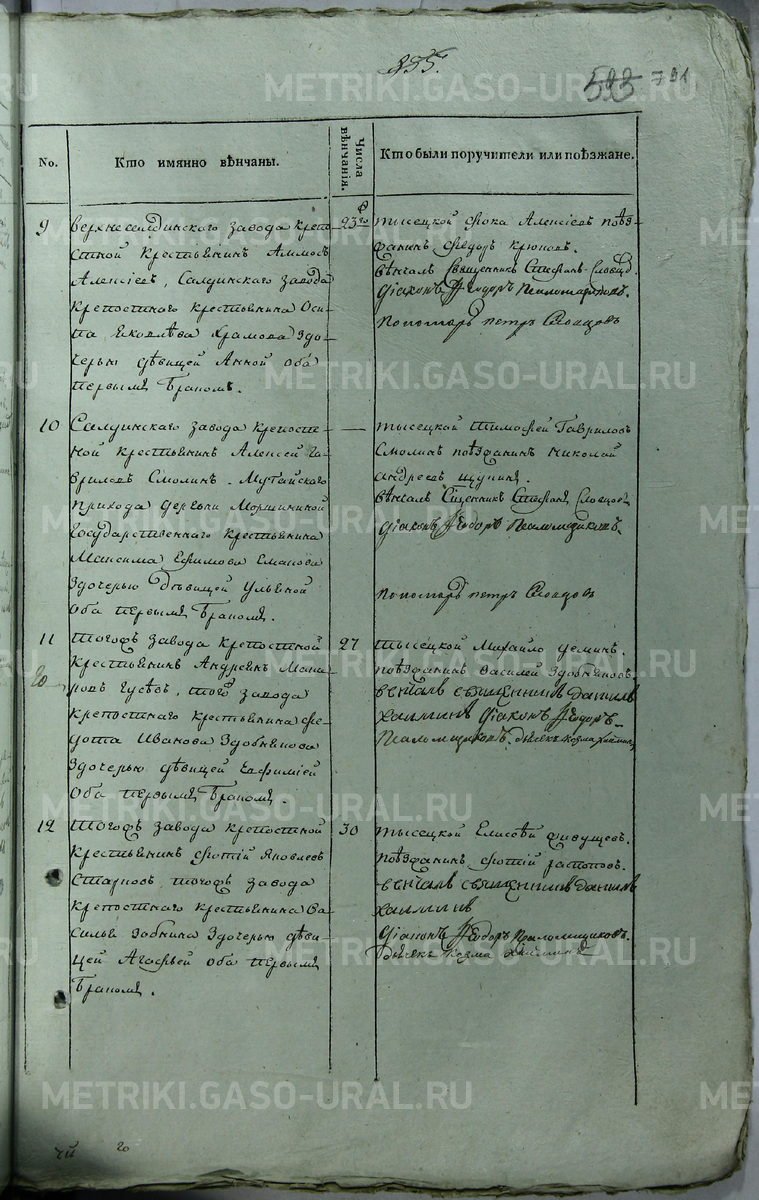 593 791
No.
Кто имянно вѣнчаны.
Числа вѣнчанія.
Кто были поручители или поѣзжане.
9
верхнесалдинскаго завода крепо
стной крестьянинъ Аммосъ
Алексіевъ, Салдинскаго завода
крепостнаго крестьянина Оси
па Яковлѣва Храмова здо
черью дѣвицей Анной оба
первымъ бракомъ.
23го
тысецкой Фока Алексіевъ поѣз
жанинъ Федоръ Крюковъ.
вѣнчалъ Священникъ Стефанъ Словцов
Діаконъ Ѳеодоръ Псаломщиковъ.
Пономарь петръ Словцовъ
10
Салдинскаго завода крепост
ной крестьянинъ Алексей Га
вриловъ Смолинъ. Мугайского
прихода деревни Моршининой
Государственнаго крестьянина
Максима Ефимова
здочерью дѣвицей Ульяной
оба первымъ бракомъ.
—
тысецкой Тимофей Гавриловъ
Смолинъ поѣзжанинъ Николай
Андреевъ
вѣнчалъ Сщенникъ Стефанъ Словцовъ
Діаконъ Ѳеодоръ Псаломщиковъ.
пономарь петръ Словцовъ
11
Тогожъ завода крепостной
крестьянинъ Андреянъ Мака
ровъ Гусевъ, того завода
крепостнаго крестьянина Фе
дота Иванова Здобнякова
здочерью дѣвицей Евфиміей
оба первымъ бракомъ.
27
тысецкой Михайло деминъ.
поѣзжанинъ Василей Здобняковъ.
венчалъ священникъ данилъ
Хаминъ Діаконъ Ѳеодоръ
Псаломщиковъ. дьячекъ козма
12
Тогожъ завода крепостной
крестьянинъ Фотій Яковлевъ
Старковъ тогожъ завода
крепостнаго крестьянина Ва
силья Зобнина здочерью дѣви
цей Агафьей оба первымъ
бракомъ.
30
тысецкой Елисѣй
поѣзжанинъ Фотій
венчалъ священникъ данилъ
Хаминъ
Діаконъ Ѳеодоръ Псаломщиковъ.
дьячекъ козма
METRIKI.GASO-URAL.RU